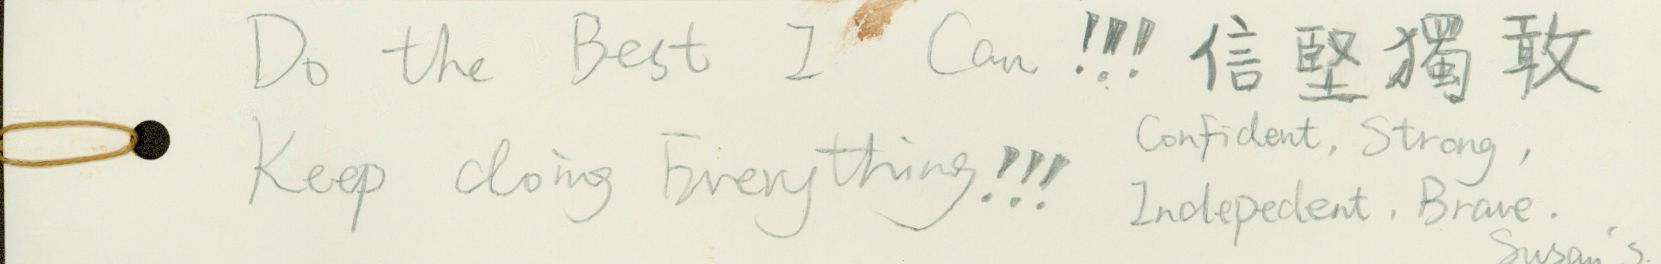 Do the Best I Can !!! 信堅獨敢
Keep doing Everything!!!
Confident, Strong,
Indepedent, Brave.
Susan's.